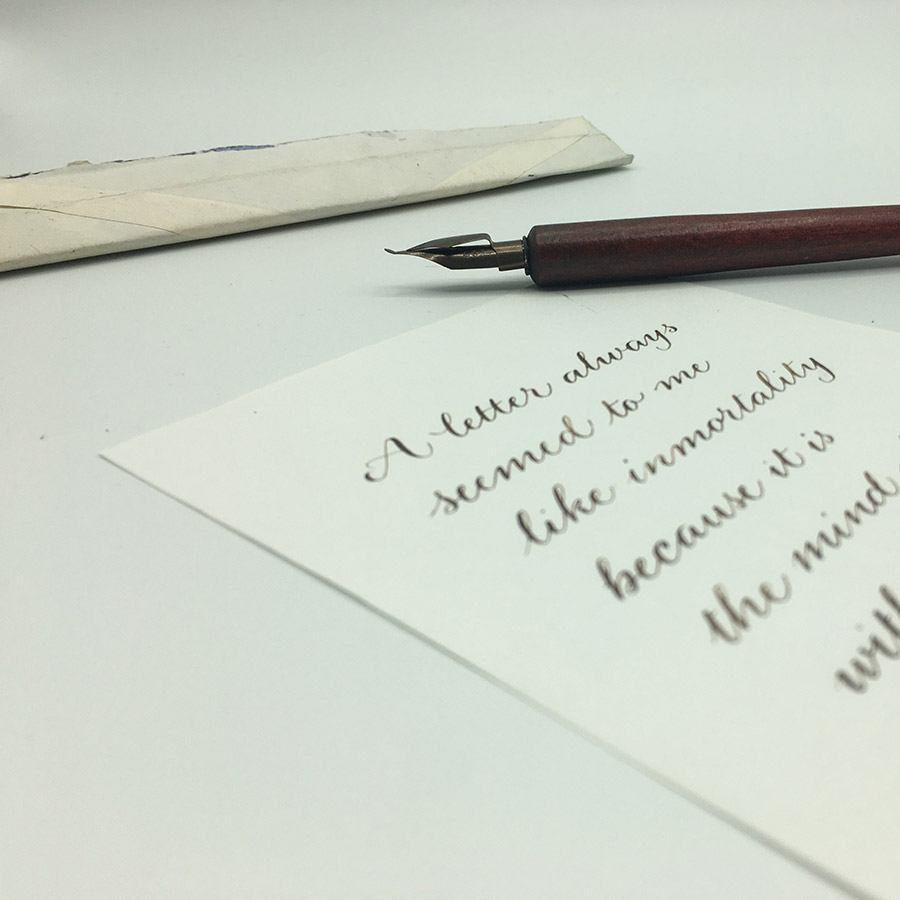 A letter always
seemed to me
like inmortality
because it is
the mind